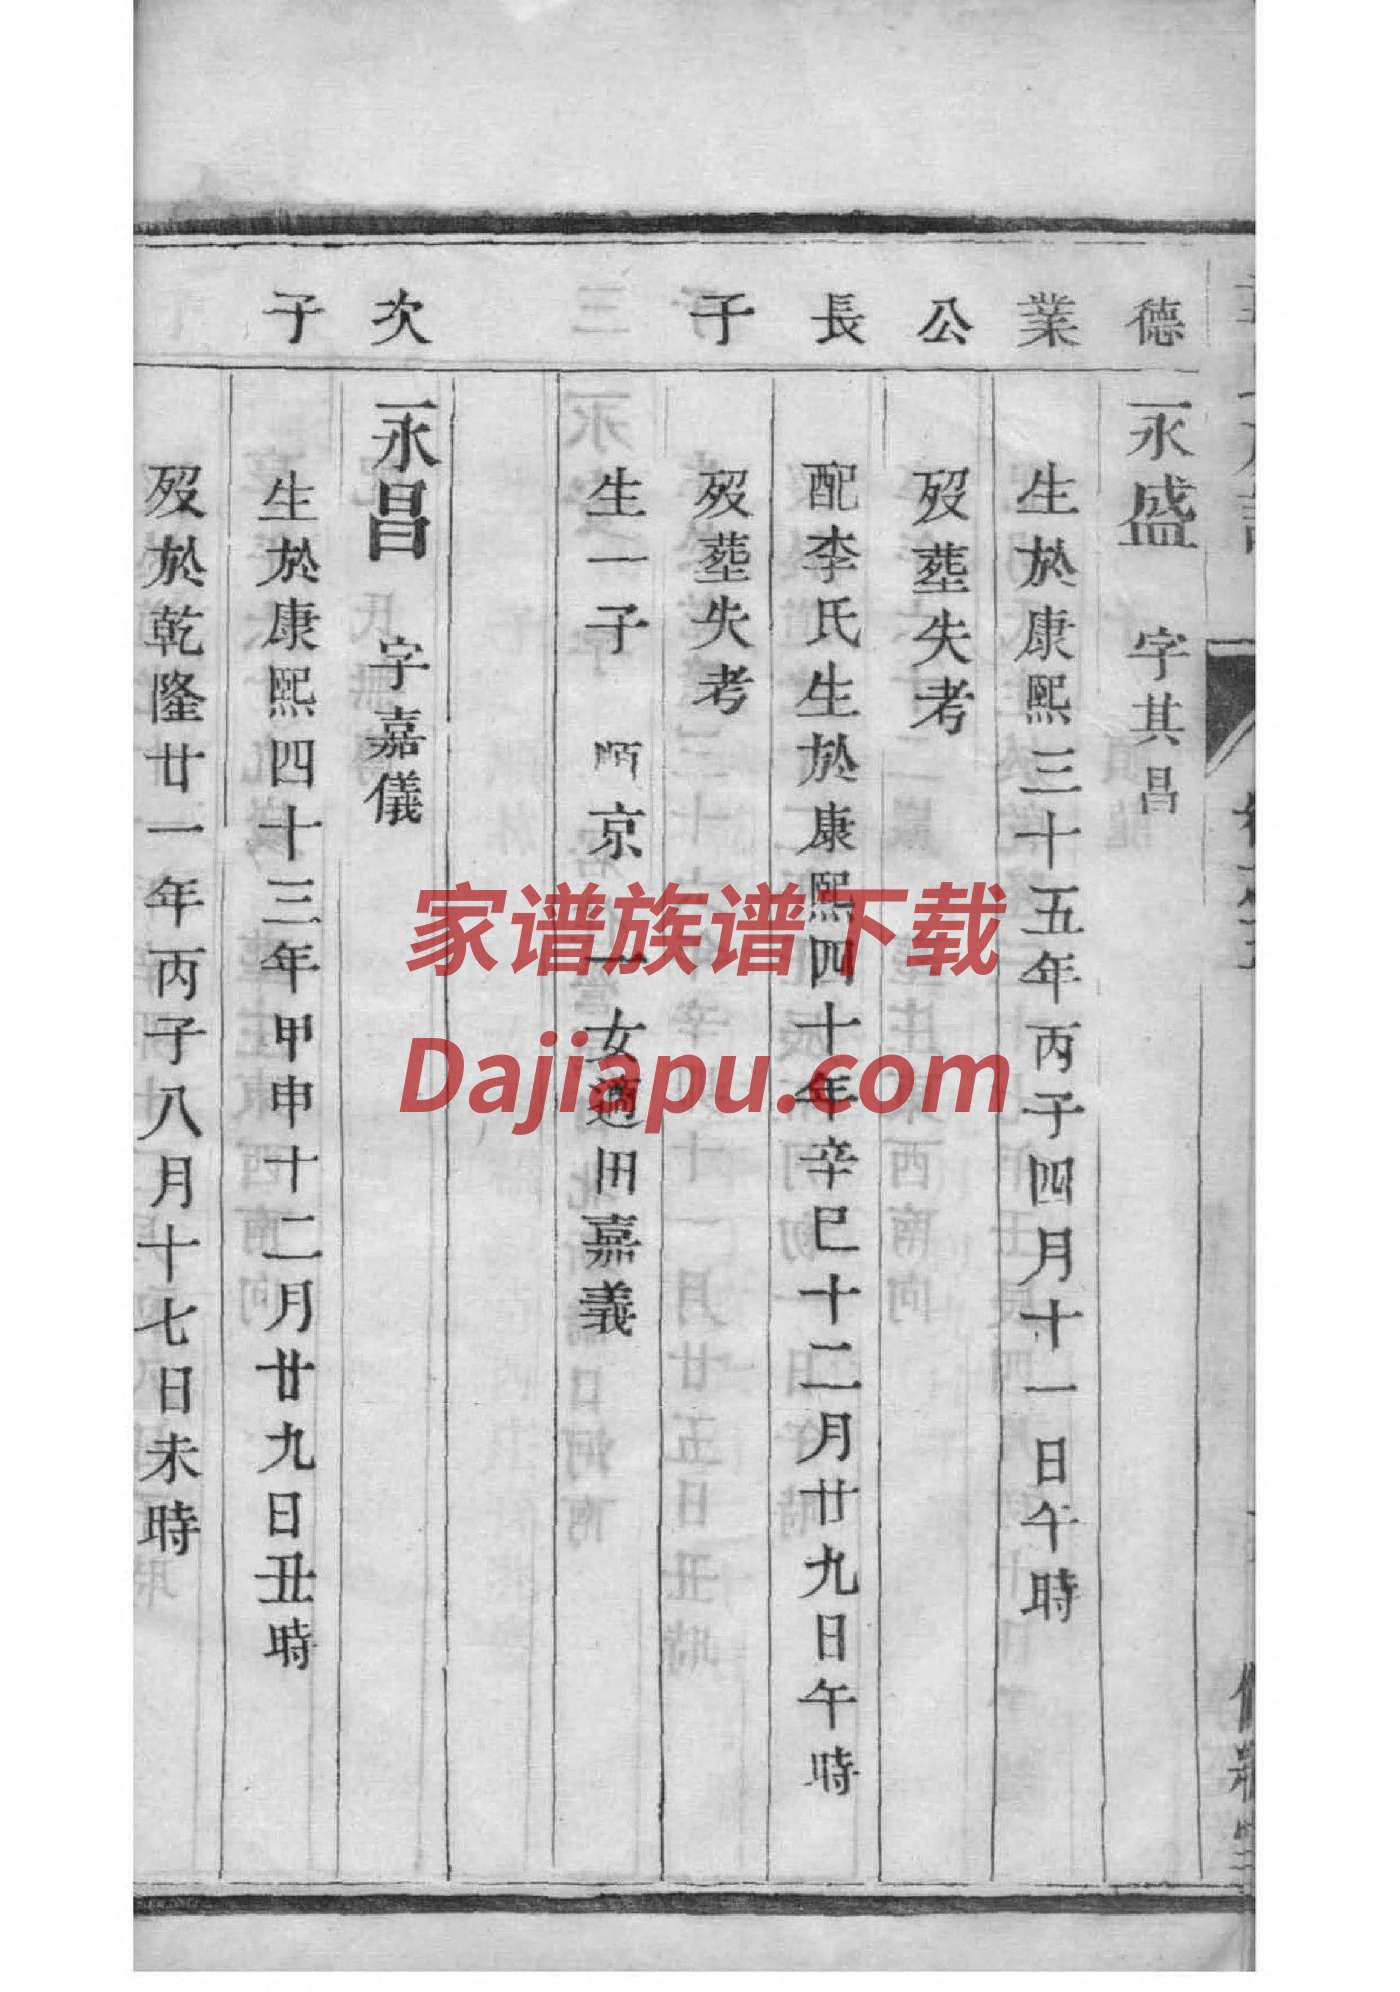 德
永盛 字其昌
業
生於康熙三十五年丙子四月十一日午時
公
歿葬失考
長
配李氏生於康熙四十年辛巳十二月廿九日午時
子
歿葬失考
生一子 京 一女適田嘉義
次
永昌 字嘉儀
子
生於康熙四十三年甲申十二月廿九日丑時
歿於乾隆廿一年丙子八月十七日未時
家谱族谱下载
Dajiapu.com